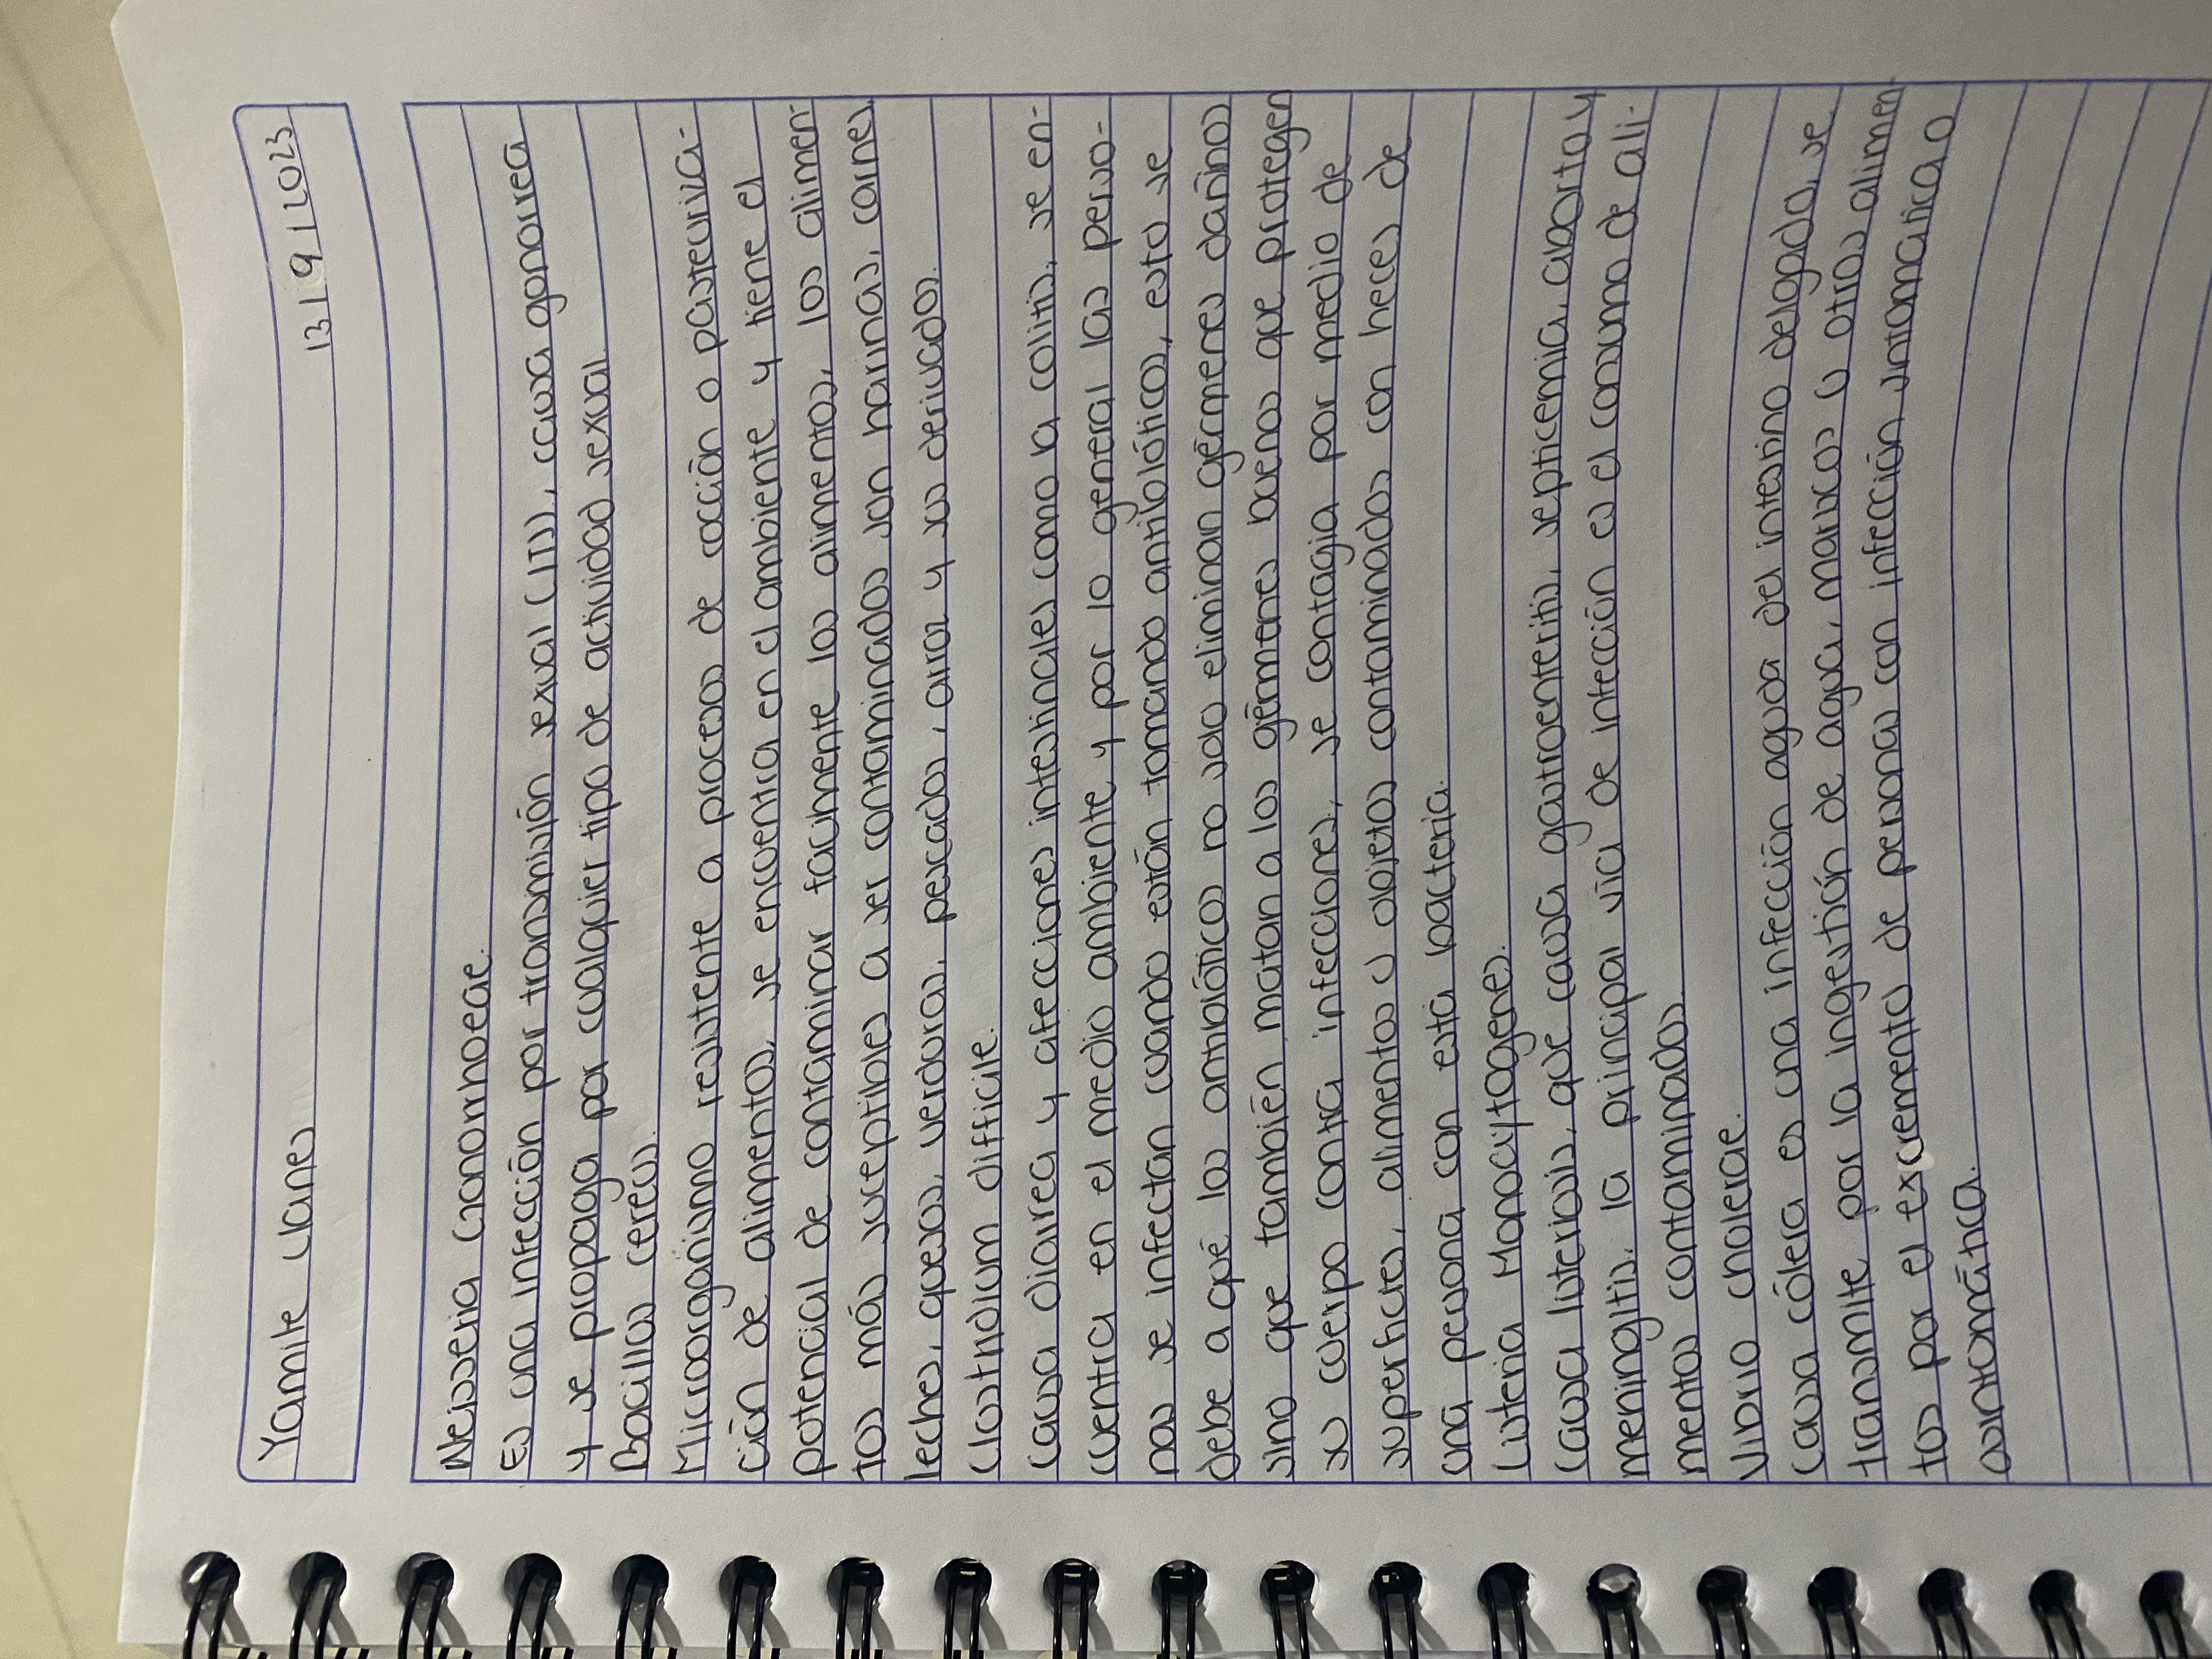 Yamile Llanes 13/9/2023
Neisseria Gonorrhoeae.
Es una infección por transmisión sexual (ITS), causa gonorrea
y se propaga por cualquier tipo de actividad sexual
Bacillos cereus.
Microorganismo resistente a procesos de cocción o pasteuriza-
ción de alimentos, se encuentra en el ambiente y tiene el
potencial de contaminar facilmente los alimentos, los alimen-
tos más suceptibles a ser contaminados son harinas, carnes
leches, quesos, verduras, pescados, arroz y sus derivados.
Clostridium difficile.
Causa diarrea y afecciones intestinales como la colitis, se en-
cuentra en el medio ambiente y por lo general las perso-
nas se infectan cuando están tomando antibióticos, esto se
debe a qué los antibióticos no solo eliminan gérmenes dañinos
sino que también matan a los gérmenes buenos que protegen
su cuerpo contra infecciones, se contagia por medio de
superficies, alimentos u objetos contaminados con heces de
una persona con esta bacteria.
Listeria Monocytogenes.
Causa listeriosis, que causa gastroenteritis, septicemia, aborto y
meningitis, la principal vía de infección es el consumo de ali-
mentos contaminados
Vibrio cholerae.
Causa cólera es una infección aguda del intestino delgado, se
transmite por la ingestión de agua, mariscos u otros alimen
tos por el excremento de personas con infección sintomática o
asintomática.